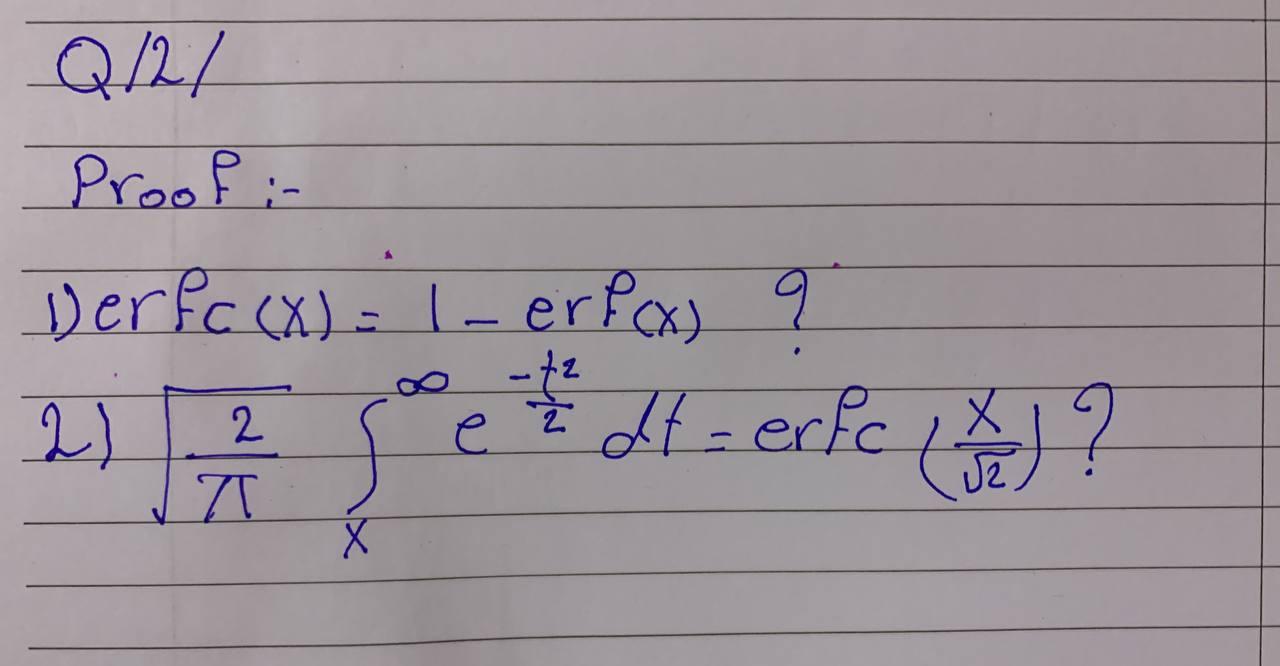 Q/2/
Proof :-
1) erfc(x) = 1 - erf(x) ?
2) √(2/π) ∫ₓ^∞ e^(-t²/2) dt = erfc (x/√2) ?